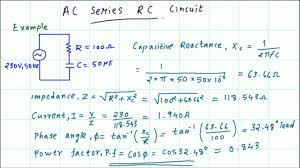 AC Series RC Circuit
Example
R = 100Ω
230V, 50Hz
C = 50μF
Capacitive Reactance, Xc = 1 / 2πfC
= 1 / 2×π×50×50×10⁻⁶ = 63.66Ω
impedance, Z = √R²+Xc² = √100²+63.66² = 118.543Ω
Current, I = V/Z = 230/118.543 = 1.940A
Phase angle, ϕ = tan⁻¹(Xc/R) = tan⁻¹(63.66/100) = 32.48° lead
Power factor, P.f = cosϕ = cos32.48° = 0.843